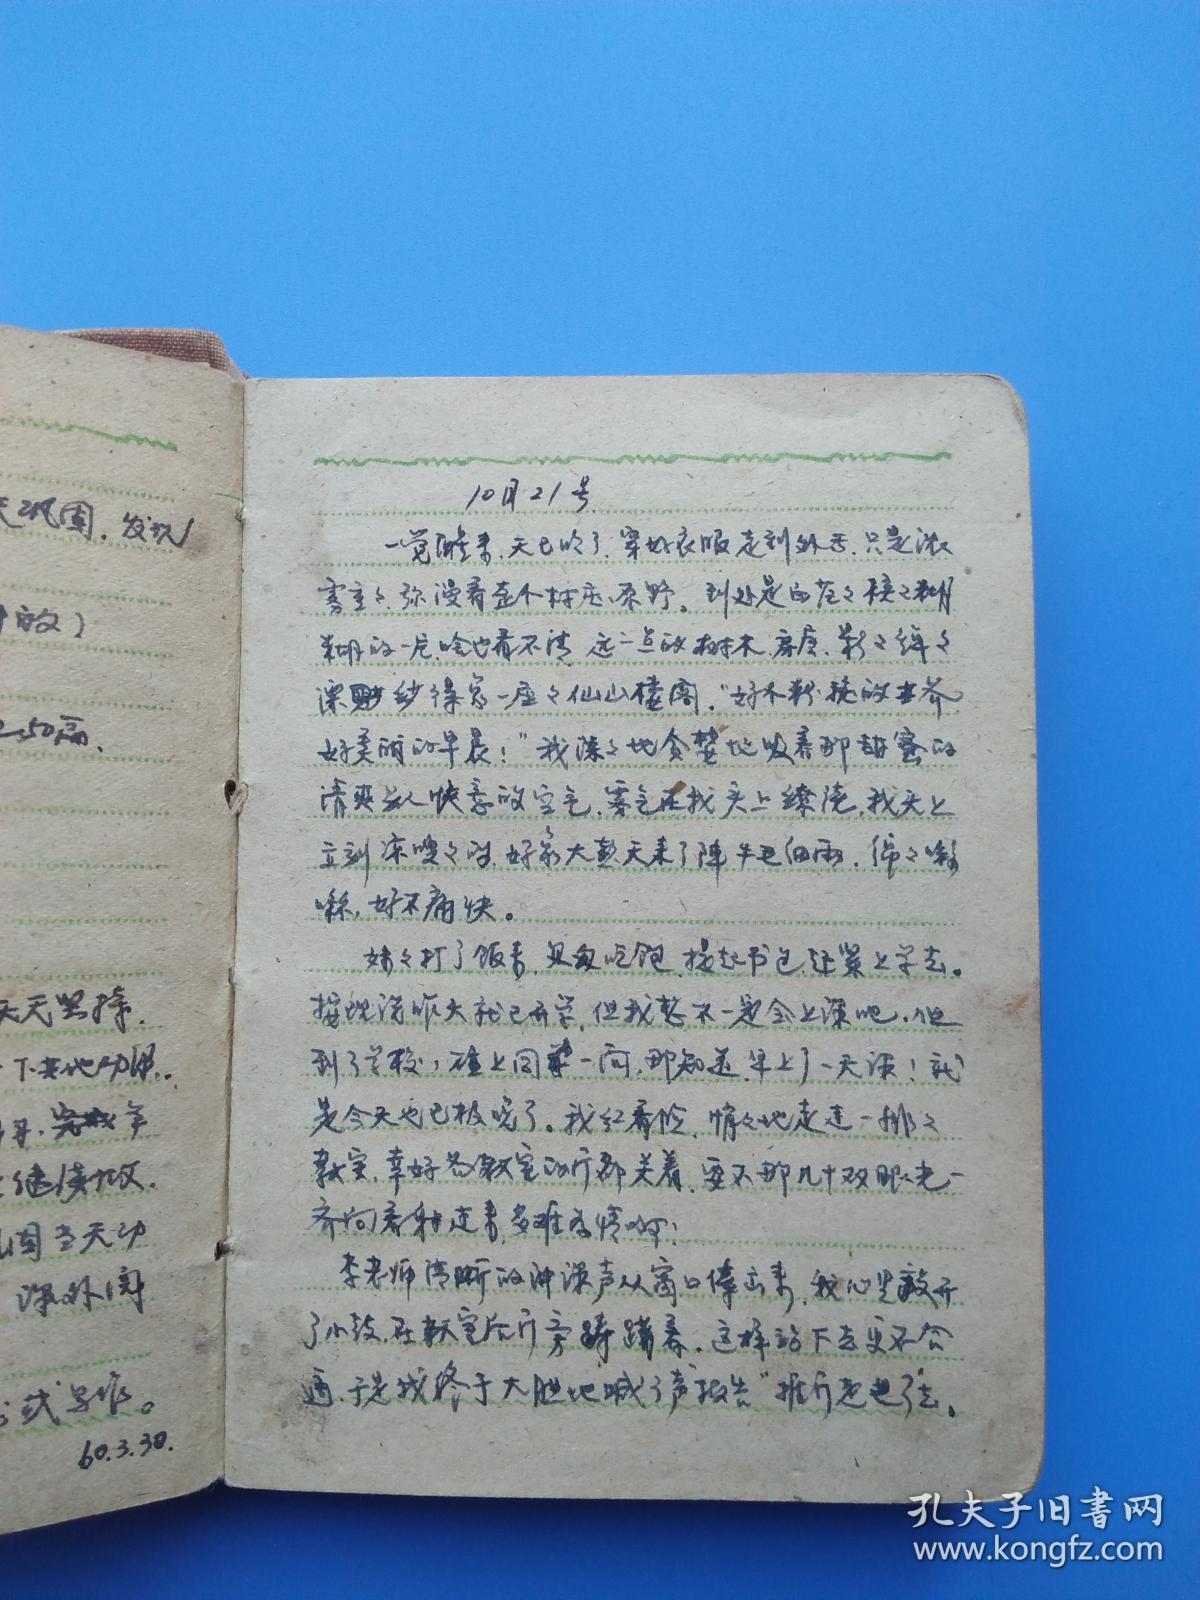 天巩固，发现
时的）
2.50高.
天天坚持.
下其他功课..
继续做.
巩固当天功
课外阅
试写作。
60.3.30.
10月21号.
一觉醒来，天已吹了，穿好衣服走到外面，只是浓
雾重々，弥漫着整个村庄、原野。到处是白茫々模々糊
糊的一片，啥也看不清，远一点的树木、房屋，影々绰々
深 纱 得象一座々仙山楼阁，"好个粉 的世界
好美丽的早晨！"我深々地贪婪地吸着那甜蜜的
清爽 人快意的空气，雾气在我头上缭绕，我头上
立刻凉嗖々的，好象大热天来了阵牛毛细雨，
，好不痛快。
妹々打了饭来，匆匆吃饱，提起书包，赶紧上学去。
按理说昨天就已开学，但我想不一定会上课吧，但
到了学校，碰上同学一问，那知道，早上了一天课！就
是今天也已极晚了。我红着脸，悄々地走近一排々
教室，幸好各教室的门都关着，要不那几十双眼光一
齐向着我 来，多难为情啊！
李老师清晰的讲课声从窗口传出来，我心里敲开
了小鼓，在教室后门旁踌躇着，这样站下去更不合
适，于是我终于大胆地喊了声"报告"推门走进了去。
孔夫子旧书网
www.kongfz.com